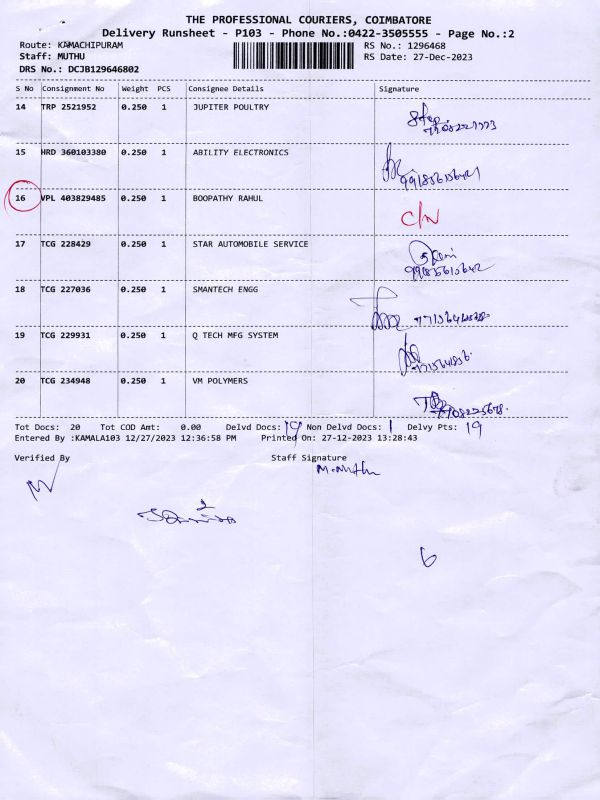 THE PROFESSIONAL COURIERS, COIMBATORE
Delivery Runsheet - P103 - Phone No.:0422-3505555 - Page No.:2
Route: KAMACHIPURAM RS No.: 1296468
Staff: MUTHU RS Date: 27-Dec-2023
DRS No.: DCJB129646802
S No Consignment No Weight PCS Consignee Details Signature
14 TRP 2521952 0.250 1 JUPITER POULTRY
15 HRD 360103380 0.250 1 ABILITY ELECTRONICS
16 VPL 403829485 0.250 1 BOOPATHY RAHUL C/N
17 TCG 228429 0.250 1 STAR AUTOMOBILE SERVICE
18 TCG 227036 0.250 1 SMANTECH ENGG
19 TCG 229931 0.250 1 Q TECH MFG SYSTEM
20 TCG 234948 0.250 1 VM POLYMERS
Tot Docs: 20 Tot COD Amt: 0.00 Delvd Docs: 19 Non Delvd Docs: 1 Delvy Pts: 19
Entered By :KAMALA103 12/27/2023 12:36:58 PM Printed On: 27-12-2023 13:28:43
Verified By Staff Signature
M.Muthu